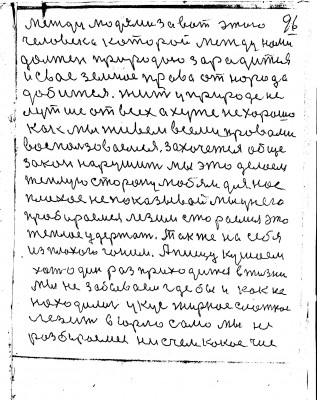 96
между людями за вот этого
человека которой между нами
должен природою зарадится
и свае земное права от народа
добится. жит у природе не
лутше от всех а хуже не хорошо
Как мы живем всеми провами
воспользоваемся. захочется обще
закон нарушит мы это делаем
теплую сторону любям для нас
плохое не показывай мы у него
пробираемся лезим стораемся это
теплое удержат. также на себя
из плохого гоним. А пищу кушаем
хат один раз приходится в жизни
мы не забываем где бы и как не
находилис укус жирное сладкое
лезит в горло само мы не
разбираемся ни с чем какое чие